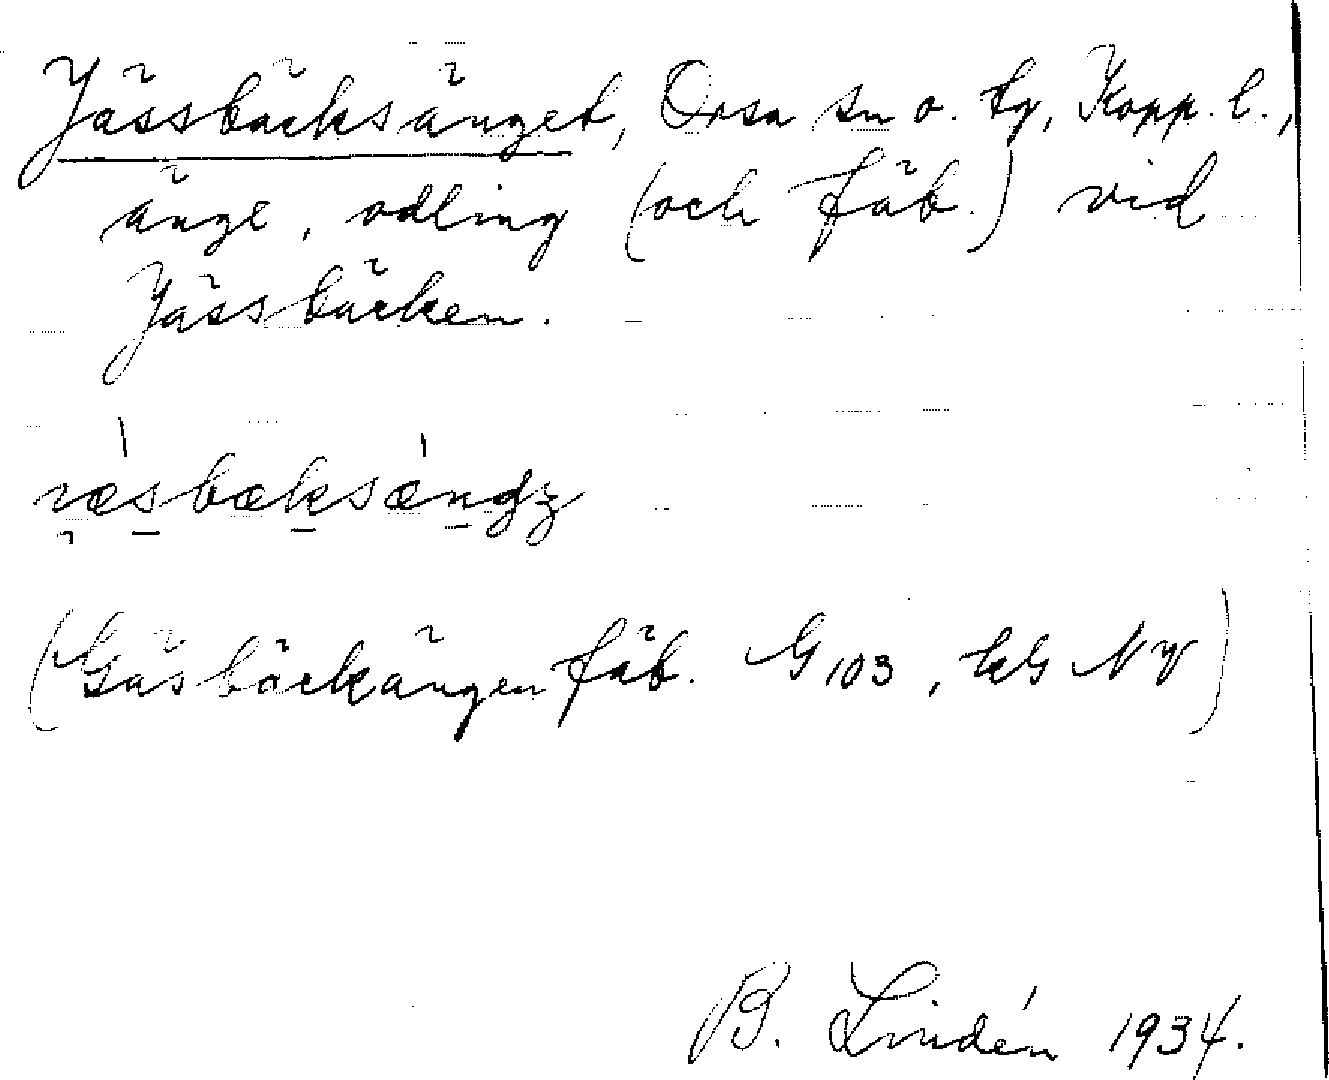 Jässbäcksänget, Orsa sn o. tg, Kopp. l.,
änge, odling (och fäb.) vid
Jässbäcken.
(Gäsbäckängen fäb. G 103, kG NV)
B. Lindén 1934.